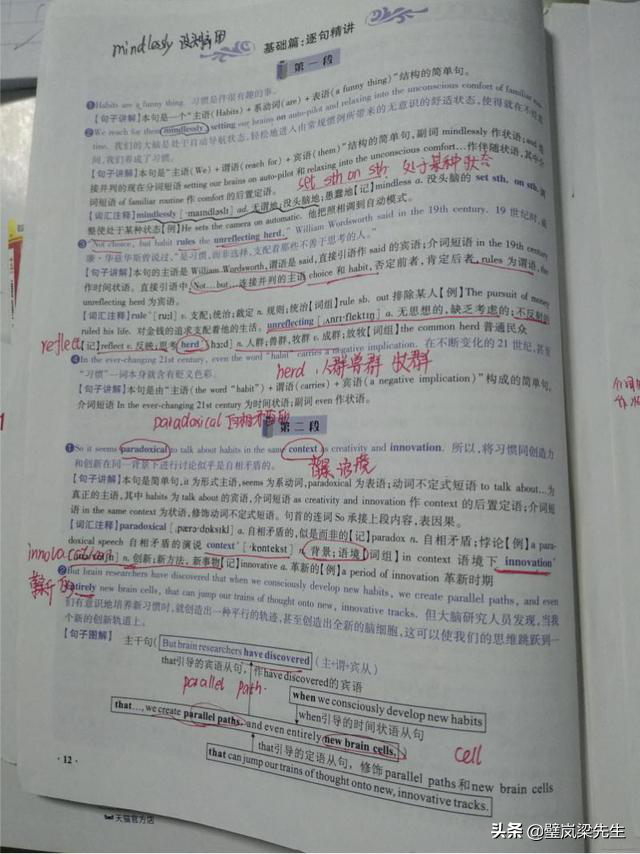 mindlessly
基础篇:逐句精讲
第一段
❶Habits are a funny thing. 习惯是件很有趣的事。
【句子讲解】本句是一个“主语(Habits)+系动词(are)+表语(a funny thing)”结构的简单句。
❷We reach for them mindlessly, setting our brains on auto-pilot and relaxing into the unconscious comfort of familiar rou-
tine. 我们的大脑总处于自动导航状态,轻松地进入由常规惯例所带来的无意识的舒适状态,使得就在不经意
间,我们养成了习惯。
【句子讲解】本句是“主语(We)+谓语(reach for)+宾语(them)”结构的简单句,副词 mindlessly 作状语;and 连
接并列的现在分词短语 setting our brains on auto-pilot 和 relaxing into the unconscious comfort…作伴随状语,其中介
词短语 of familiar routine 作 comfort 的后置定语。
set sth on sth. 处于某种状态
【词汇注释】mindlessly [ˈmaɪndləslɪ] ad. 无谓地;没头脑地;愚蠢地【记】mindless a. 没头脑的 set sth. on sth. 调
整使处于某种状态【例】He sets the camera on automatic. 他把照相调到自动模式。
❸“Not choice, but habit rules the unreflecting herd,” William Wordsworth said in the 19th century. 19 世纪时,威
廉·华兹华斯曾说过,“是习惯,而非选择,支配着那些不善于思考的人。”
【句子讲解】本句的主语是 William Wordsworth,谓语是 said,直接引语作 said 的宾语;介词短语 in the 19th century
作时间状语。直接引语中,Not…but…连接并列的主语 choice 和 habit,否定前者,肯定后者,rules 为谓语,the
unreflecting herd 为宾语。
【词汇注释】rule* [ruːl] v. 支配;统治;裁定 n. 规则;统治【词组】rule sb. out 排除某人【例】The pursuit of money
ruled his life. 对金钱的追求支配着他的生活。 unreflecting [ˌʌnrɪˈflektɪŋ] a. 无思想的,缺乏考虑的;不反射的
reflect
【记】reflect v. 反映;思考 herd* [hɜːd] n. 人群;兽群,牧群 v. 成群;放牧【词组】the common herd 普通民众
❹In the ever-changing 21st century, even the word “habit” carries a negative implication. 在不断变化的 21 世纪,甚至
herd. 人群兽群 牧群
“习惯”一词本身就含有贬义色彩。
【句子讲解】本句是由“主语(the word “habit”)+谓语(carries)+宾语(a negative implication)”构成的简单句,
介词短语 In the ever-changing 21st century 为时间状语;副词 even 作状语。
paradoxical 自相矛盾的
第二段
❶So it seems paradoxical to talk about habits in the same context as creativity and innovation. 所以,将习惯同创造力
和创新在同一背景下进行讨论似乎是自相矛盾的。
语境
【句子讲解】本句是简单句,it 为形式主语,seems 为系动词,paradoxical 为表语;动词不定式短语 to talk about…为
真正的主语,其中 habits 为 talk about 的宾语,介词短语 as creativity and innovation 作 context 的后置定语;介词短
语 in the same context 为状语,修饰动词不定式短语。句首的连词 So 承接上段内容,表因果。
【词汇注释】paradoxical [ˌpærəˈdɒksɪkl] a. 自相矛盾的,似是而非的【记】paradox n. 自相矛盾;悖论【例】a para-
doxical speech 自相矛盾的演说 context* [ˈkɒntekst] n. 背景;语境【词组】in context 语境下 innovation*
n. 创新;新方法,新事物【记】innovative a. 革新的【例】a period of innovation 革新时期
❷But brain researchers have discovered that when we consciously develop new habits, we create parallel paths, and even
entirely new brain cells, that can jump our trains of thought onto new, innovative tracks. 但大脑研究人员发现,当我
们有意识地培养新习惯时,就创造出一种平行的轨迹,甚至创造出全新的脑细胞,这可以使我们的思维跳跃到一
个新的创新轨道上。
【句子图解】 主干句(But brain researchers have discovered (主+谓+宾从)
that引导的宾语从句,作have discovered的宾语
parallel path.
when we consciously develop new habits
when引导的时间状语从句
that…, we create parallel paths, and even entirely new brain cells,
cell
that引导的定语从句,修饰parallel paths和new brain cells
that can jump our trains of thought onto new, innovative tracks.
·12·
天猫官方店
头条 @璧岚梁先生